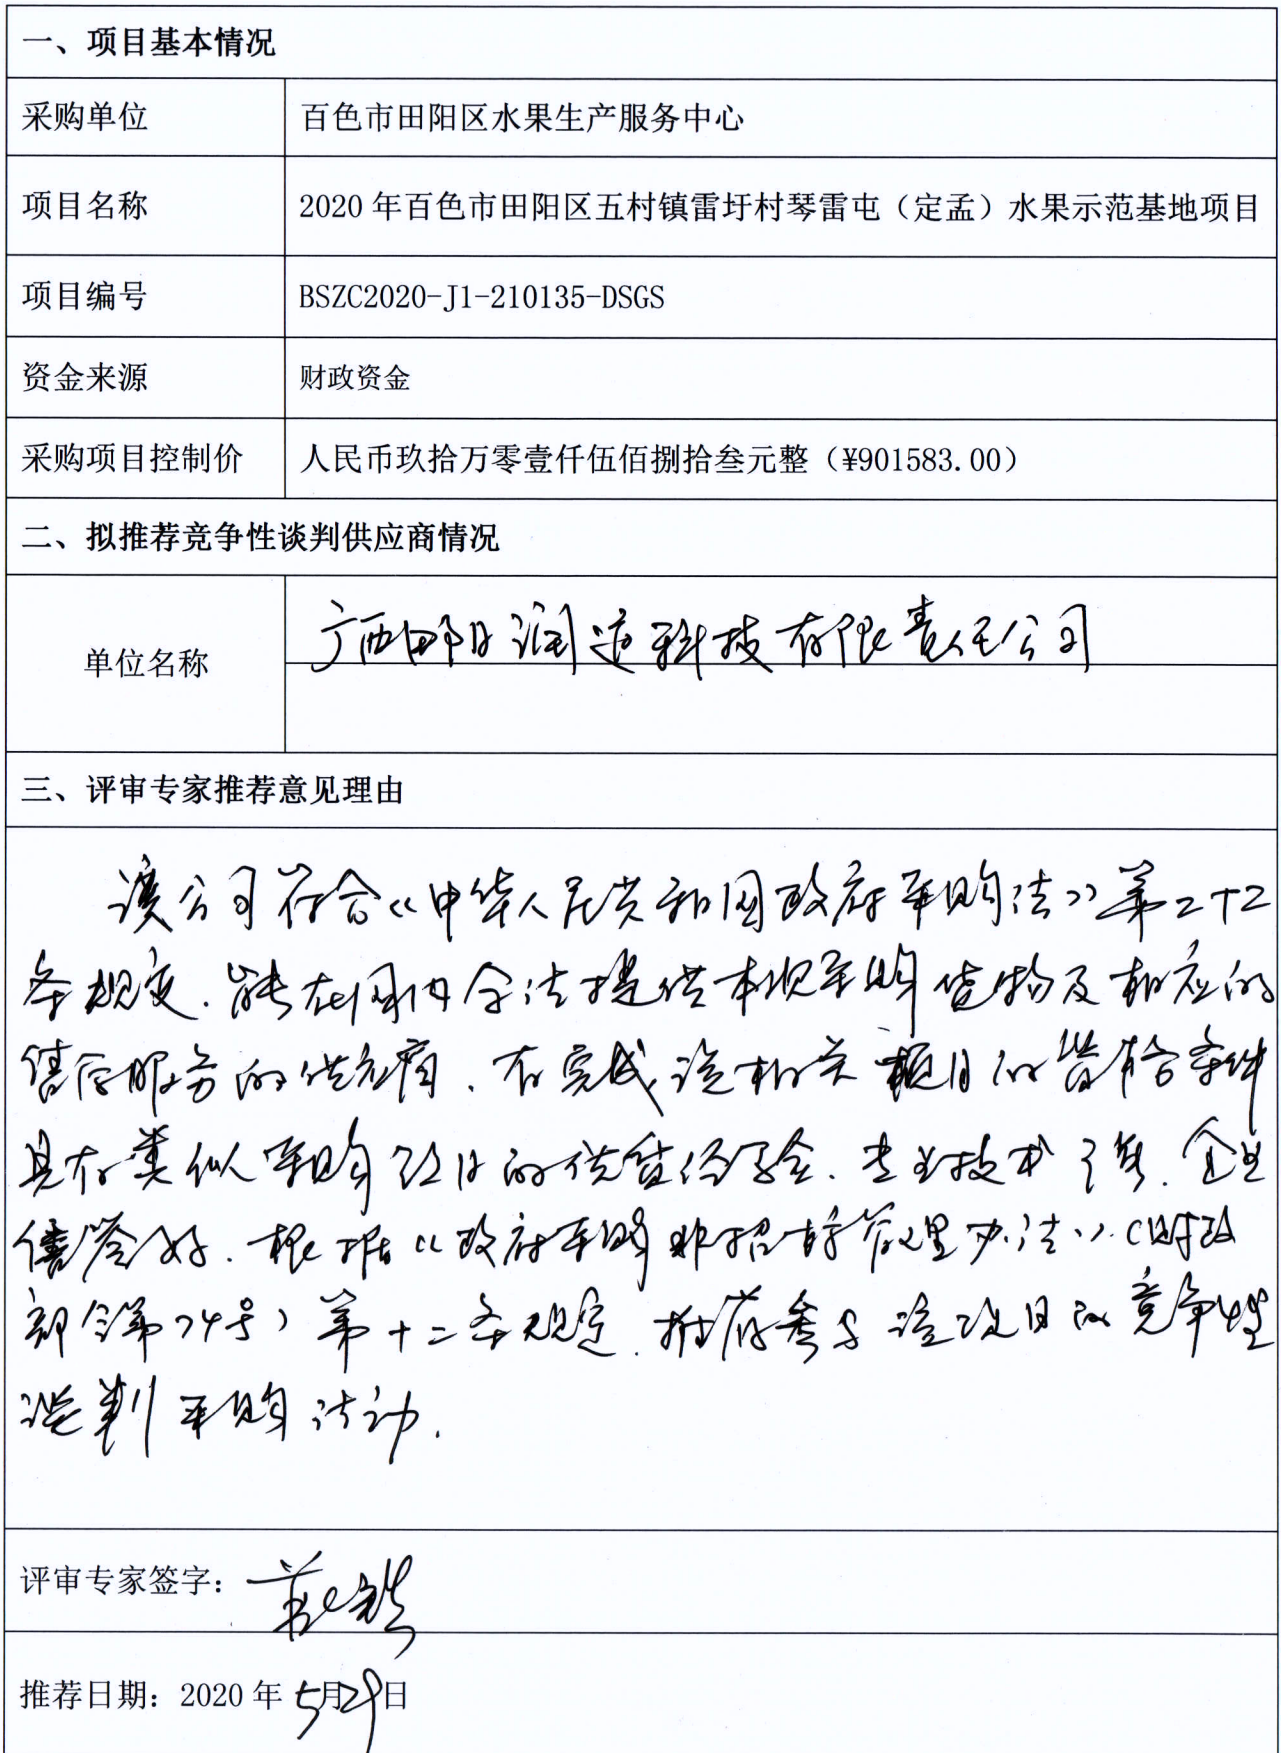 一、项目基本情况
采购单位 百色市田阳区水果生产服务中心
项目名称 2020年百色市田阳区五村镇雷圩村琴雷屯（定孟）水果示范基地项目
项目编号 BSZC2020-J1-210135-DSGS
资金来源 财政资金
采购项目控制价 人民币玖拾万零壹仟伍佰捌拾叁元整（¥901583.00）
二、拟推荐竞争性谈判供应商情况
单位名称 广西 科技有限责任公司
三、评审专家推荐意见理由
该公司符合《中华人民共和国政府采购法》第二十二
条规定.能在国内合法提供本项采购货物及相应的
售后服务的供应商.有完成该相关项目的 条件
具有类似采购项目的供货经验.专业技术强.企业
信誉好.根据《政府采购非招标管理办法》.（财政
部令第74号）第十二条规定.推荐参与该项目的竞争性
谈判采购活动.
评审专家签字：
推荐日期：2020年5月29日